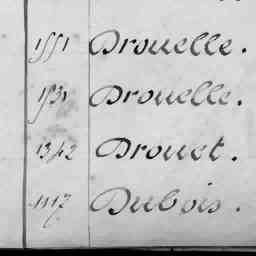 1551 Drouelle.
1531 Drouelle.
1342 Drouet.
1117 Dubois.